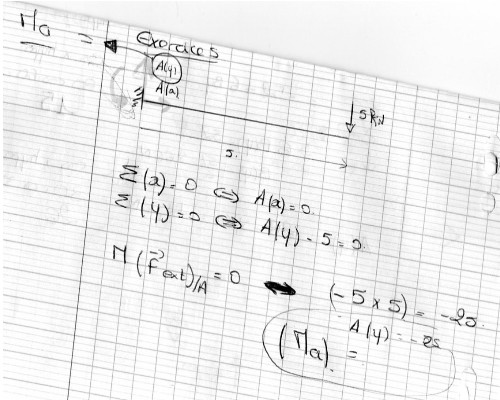 Ma =
Exercice 5
A(y)
A(x)
5 kN
5.
Σ(x) = 0 ⇔ A(x) = 0.
Σ(y) = 0 ⇔ A(y) - 5 = 0.
M(F⃗ext)/A = 0 ⇔ (-5 x 5) = -25.
A(y) = -25
(Ma). =